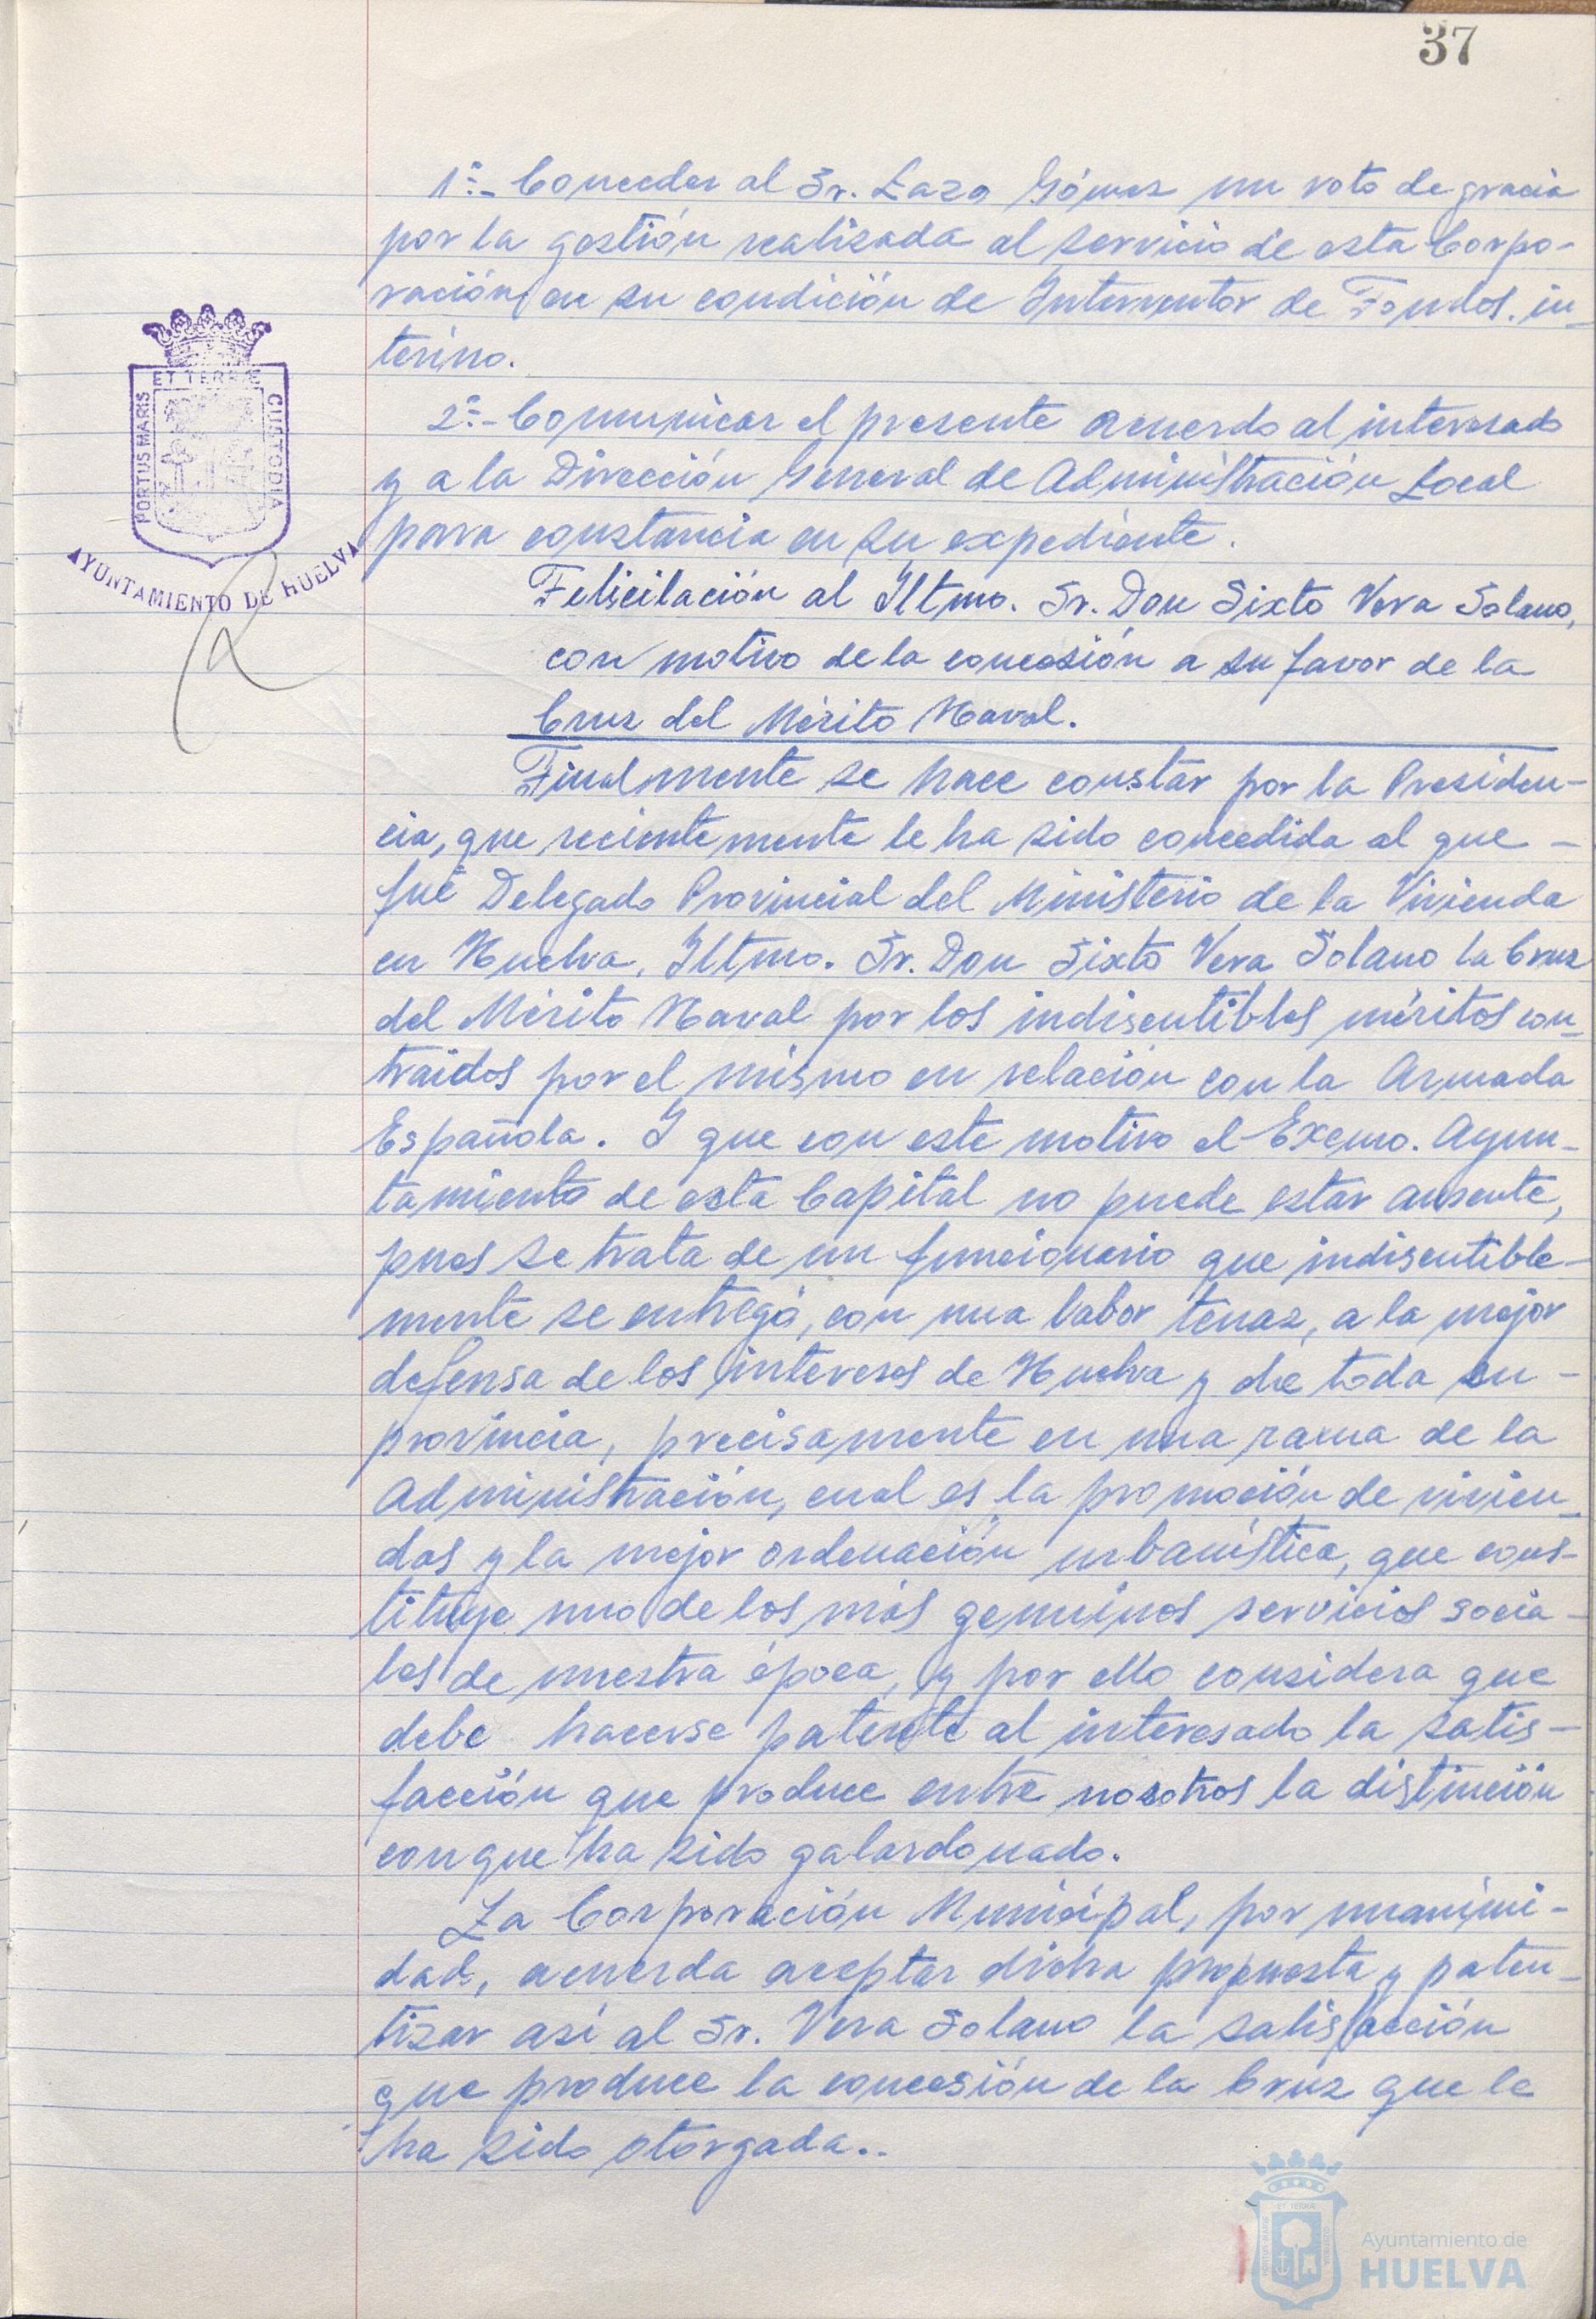 37
1º.- Conceder al Sr. Lazo Gómez un voto de gracia
por la gestión realizada al servicio de esta Corpo-
ración, en su condición de Interventor de Fondos in-
terino.
2º.- Comunicar el presente acuerdo al interesado
y a la Dirección General de Administración Local
para constancia en su expediente.
Felicitación al Iltmo. Sr. Don Sixto Vera Solano,
con motivo de la concesión a su favor de la
Cruz del Mérito Naval.
Finalmente se hace constar por la Presiden-
cia, que recientemente le ha sido concedida al que -
fué Delegado Provincial del Ministerio de la Vivienda
en Huelva, Iltmo. Sr. Don Sixto Vera Solano la Cruz
del Mérito Naval por los indiscutibles méritos con-
traidos por el mismo en relación con la Armada
Española. Y que con este motivo el Excmo. Ayun-
tamiento de esta Capital no puede estar ausente,
pues se trata de un funcionario que indiscutible-
mente se entregó, con una labor tenaz, a la mejor
defensa de los intereses de Huelva y de toda su -
provincia, precisamente en una rama de la
Administración, cual es la promoción de vivien-
das y la mejor ordenación urbanística, que cons-
tituye uno de los más genuinos servicios socia-
les de nuestra época, y por ello considera que
debe hacerse patente al interesado la satis-
facción que produce entre nosotros la distinción
con que ha sido galardonado.
La Corporación Municipal, por unanimi-
dad, acuerda aceptar dicha propuesta y paten-
tizar así al Sr. Vera Solano la satisfacción
que produce la concesión de la Cruz que le
ha sido otorgada..
PORTUS MARIS
ET TERRÆ
CUSTODIA
AYUNTAMIENTO DE HUELVA
Ayuntamiento de
HUELVA